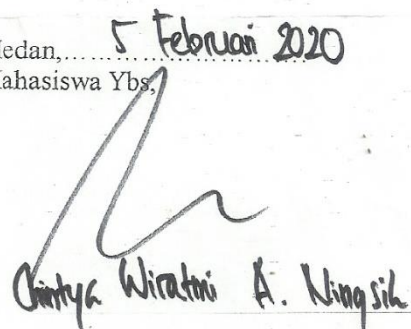 Medan, 5 Februari 2020
Mahasiswa Ybs,
Chintya Wiratmi A. Ningsih